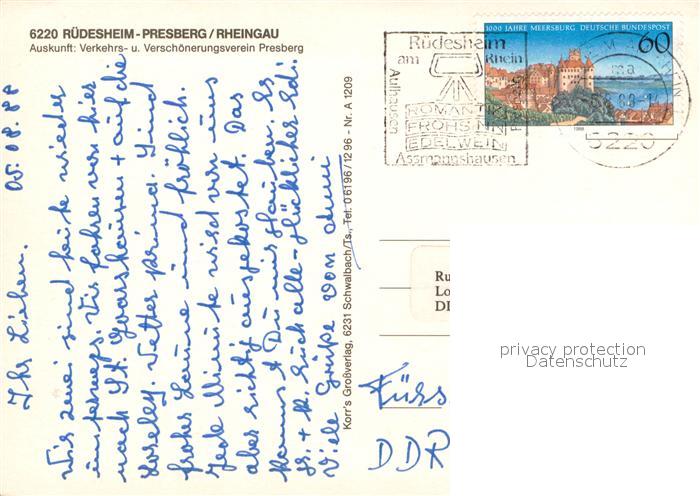 6220 RÜDESHEIM-PRESBERG/RHEINGAU
Auskunft: Verkehrs- u. Verschönerungsverein Presberg
05.08.88
Ihr Lieben.
Wir zwei sind heute wieder
unterwegs. Wir fahren von hier
nach St. Goarshausen + auf die
Loreley. Wetter prima. Sind
frohes Laune und fröhlich.
Jede Minute wird von uns
aber richtig ausgekostet. Das
kannst Du uns glauben. Es
ist Euch alle glückliche
Viele Grüße vom
Korr's Großverlag, 6231 Schwalbach/Ts., Tel. 06196/1296 - Nr. A 1209
Rüdesheim
am Rhein
Aulhausen
ROMANTIK
FROHSINN
EDELWEIN
Assmannshausen
1000 JAHRE MEERSBURG DEUTSCHE BUNDESPOST
60
1988
6220
Ru
Lo
DI
Fürs
DDR
privacy protection
Datenschutz